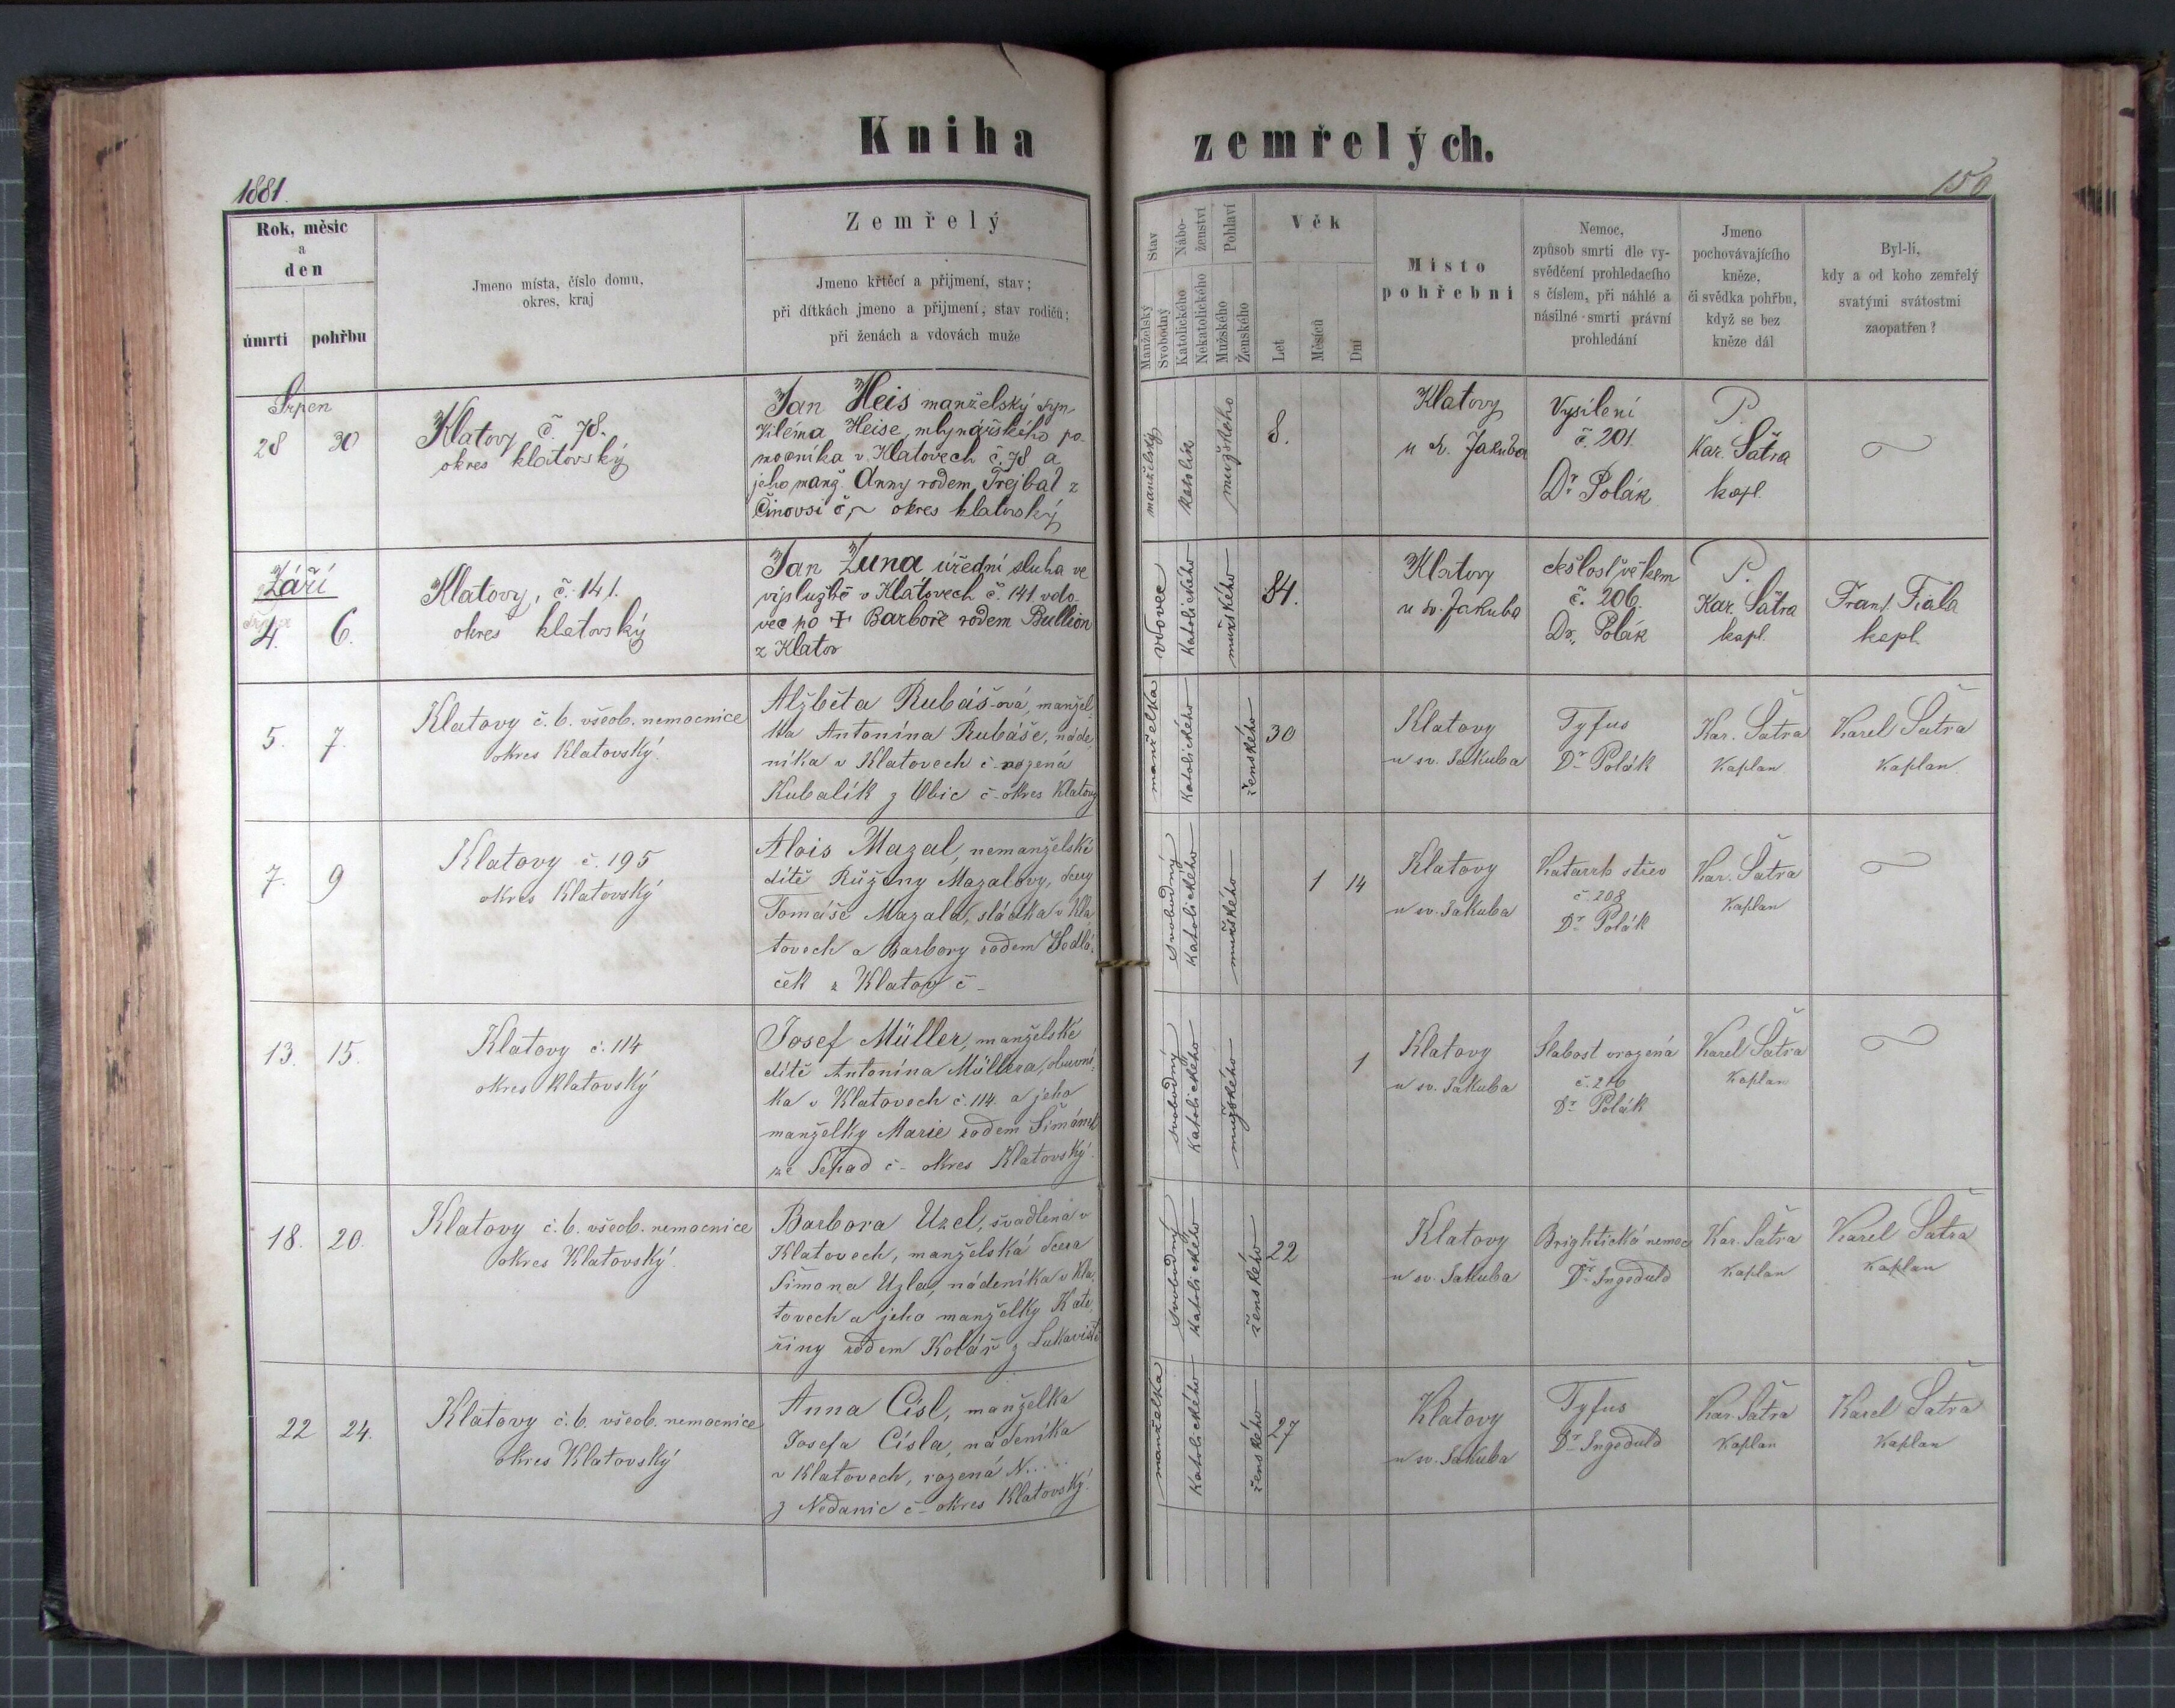 Kniha zemřelých.
1881.
150
Rok, měsíc
a
den
úmrtí
pohřbu
Jmeno místa, číslo domu,
okres, kraj
Zemřelý
Jmeno křtěcí a přijmení, stav;
při dítkách jmeno a přijmení, stav rodičů;
při ženách a vdovách muže
Stav
Manželský
Svobodný
Nábo-
ženství
Katolického
Nekatolického
Pohlaví
Mužského
Ženského
Věk
Let
Měsíců
Dní
Místo
pohřební
Nemoc,
způsob smrti dle vy-
svědčení prohledacího
s číslem, při náhlé a
násilné smrti právní
prohledání
Jmeno
pochovávajícího
kněze,
či svědka pohřbu,
když se bez
kněze dál
Byl-li,
kdy a od koho zemřelý
svatými svátostmi
zaopatřen?
Srpen
28
30
Klatovy č. 78.
okres klatovský
Jan Heis manželský syn
Viléma Heise, mlynářského po-
mocníka v Klatovech č. 78 a
jeho manž. Anny rodem Trejbal z
Činovsi č. ~ okres klatovský
manželský
katolík
mužského
8.
Klatovy
u sv. Jakuba
Vysílení
č. 201.
Dr. Polák
P.
Kar. Šatra
kapl.
Září
4.
6.
Klatovy, č. 141.
okres klatovský
Jan Zuna úřední sluha ve
výslužbě v Klatovech č. 141. vdo-
vec po + Barboře rodem Bullion
z Klatov
vdovec
Katolického
mužského
84.
Klatovy
u sv. Jakuba
sešlost věkem
č. 206.
Dr. Polák
P.
Kar. Šatra
kapl.
Frant. Fiala
kapl.
5.
7.
Klatovy č. 6. všeob. nemocnice
okres Klatovský.
Alžběta Rubáš-ová, manžel-
ka Antonína Rubáše, náde-
níka v Klatovech č - rozená
Kubalík z Obic č - okres Klatovy
manželka
Katolického
ženského
30
Klatovy
u sv. Jakuba
Tyfus
Dr. Polák
Kar. Šatra
Kaplan
Karel Šatra
Kaplan
7.
9
Klatovy č. 195
okres Klatovský
Alois Mazal, nemanželské
dítě Růženy Mazalovy, dcery
Tomáše Mazala, sládka v Kla
tovech a Barbory rodem Sedlá-
ček z Klatov č -
svobodný
Katolického
mužského
1
14
Klatovy
u sv. Jakuba
Katarrh střev
č. 208
Dr. Polák
Kar. Šatra
Kaplan
13.
15.
Klatovy č. 114
okres Klatovský
Josef Müller, manželské
dítě Antonína Müllera, obuvní-
ka v Klatovech č. 114. a jeho
manželky Marie rodem Šimánek
ze Sepad č - okres Klatovský.
svobodný
Katolického
mužského
1
Klatovy
u sv. Jakuba
Slabost vrozená
č. 216
Dr. Polák
Karel Šatra
Kaplan
18.
20.
Klatovy č. 6. všeob. nemocnice
okres Klatovský.
Barbora Uzel, švadlena v
Klatovech, manželská dcera
Šimona Uzla, nádeníka v Kla-
tovech a jeho manželky Kate-
řiny rodem Kolář z Lukaviště
svobodný
Katolického
ženského
22
Klatovy
u sv. Jakuba
Brightická nemoc
Dr. Ingeduld
Kar. Šatra
Kaplan
Karel Šatra
Kaplan
22
24.
Klatovy č. 6. všeob. nemocnice
okres Klatovský
Anna Císl, manželka
Josefa Císla, nádeníka
v Klatovech, rozená N.....
z Nedanic č - okres Klatovský.
manželka
Katolického
ženského
27
Klatovy
u sv. Jakuba
Tyfus
Dr. Ingeduld
Kar. Šatra
Kaplan
Karel Šatra
Kaplan